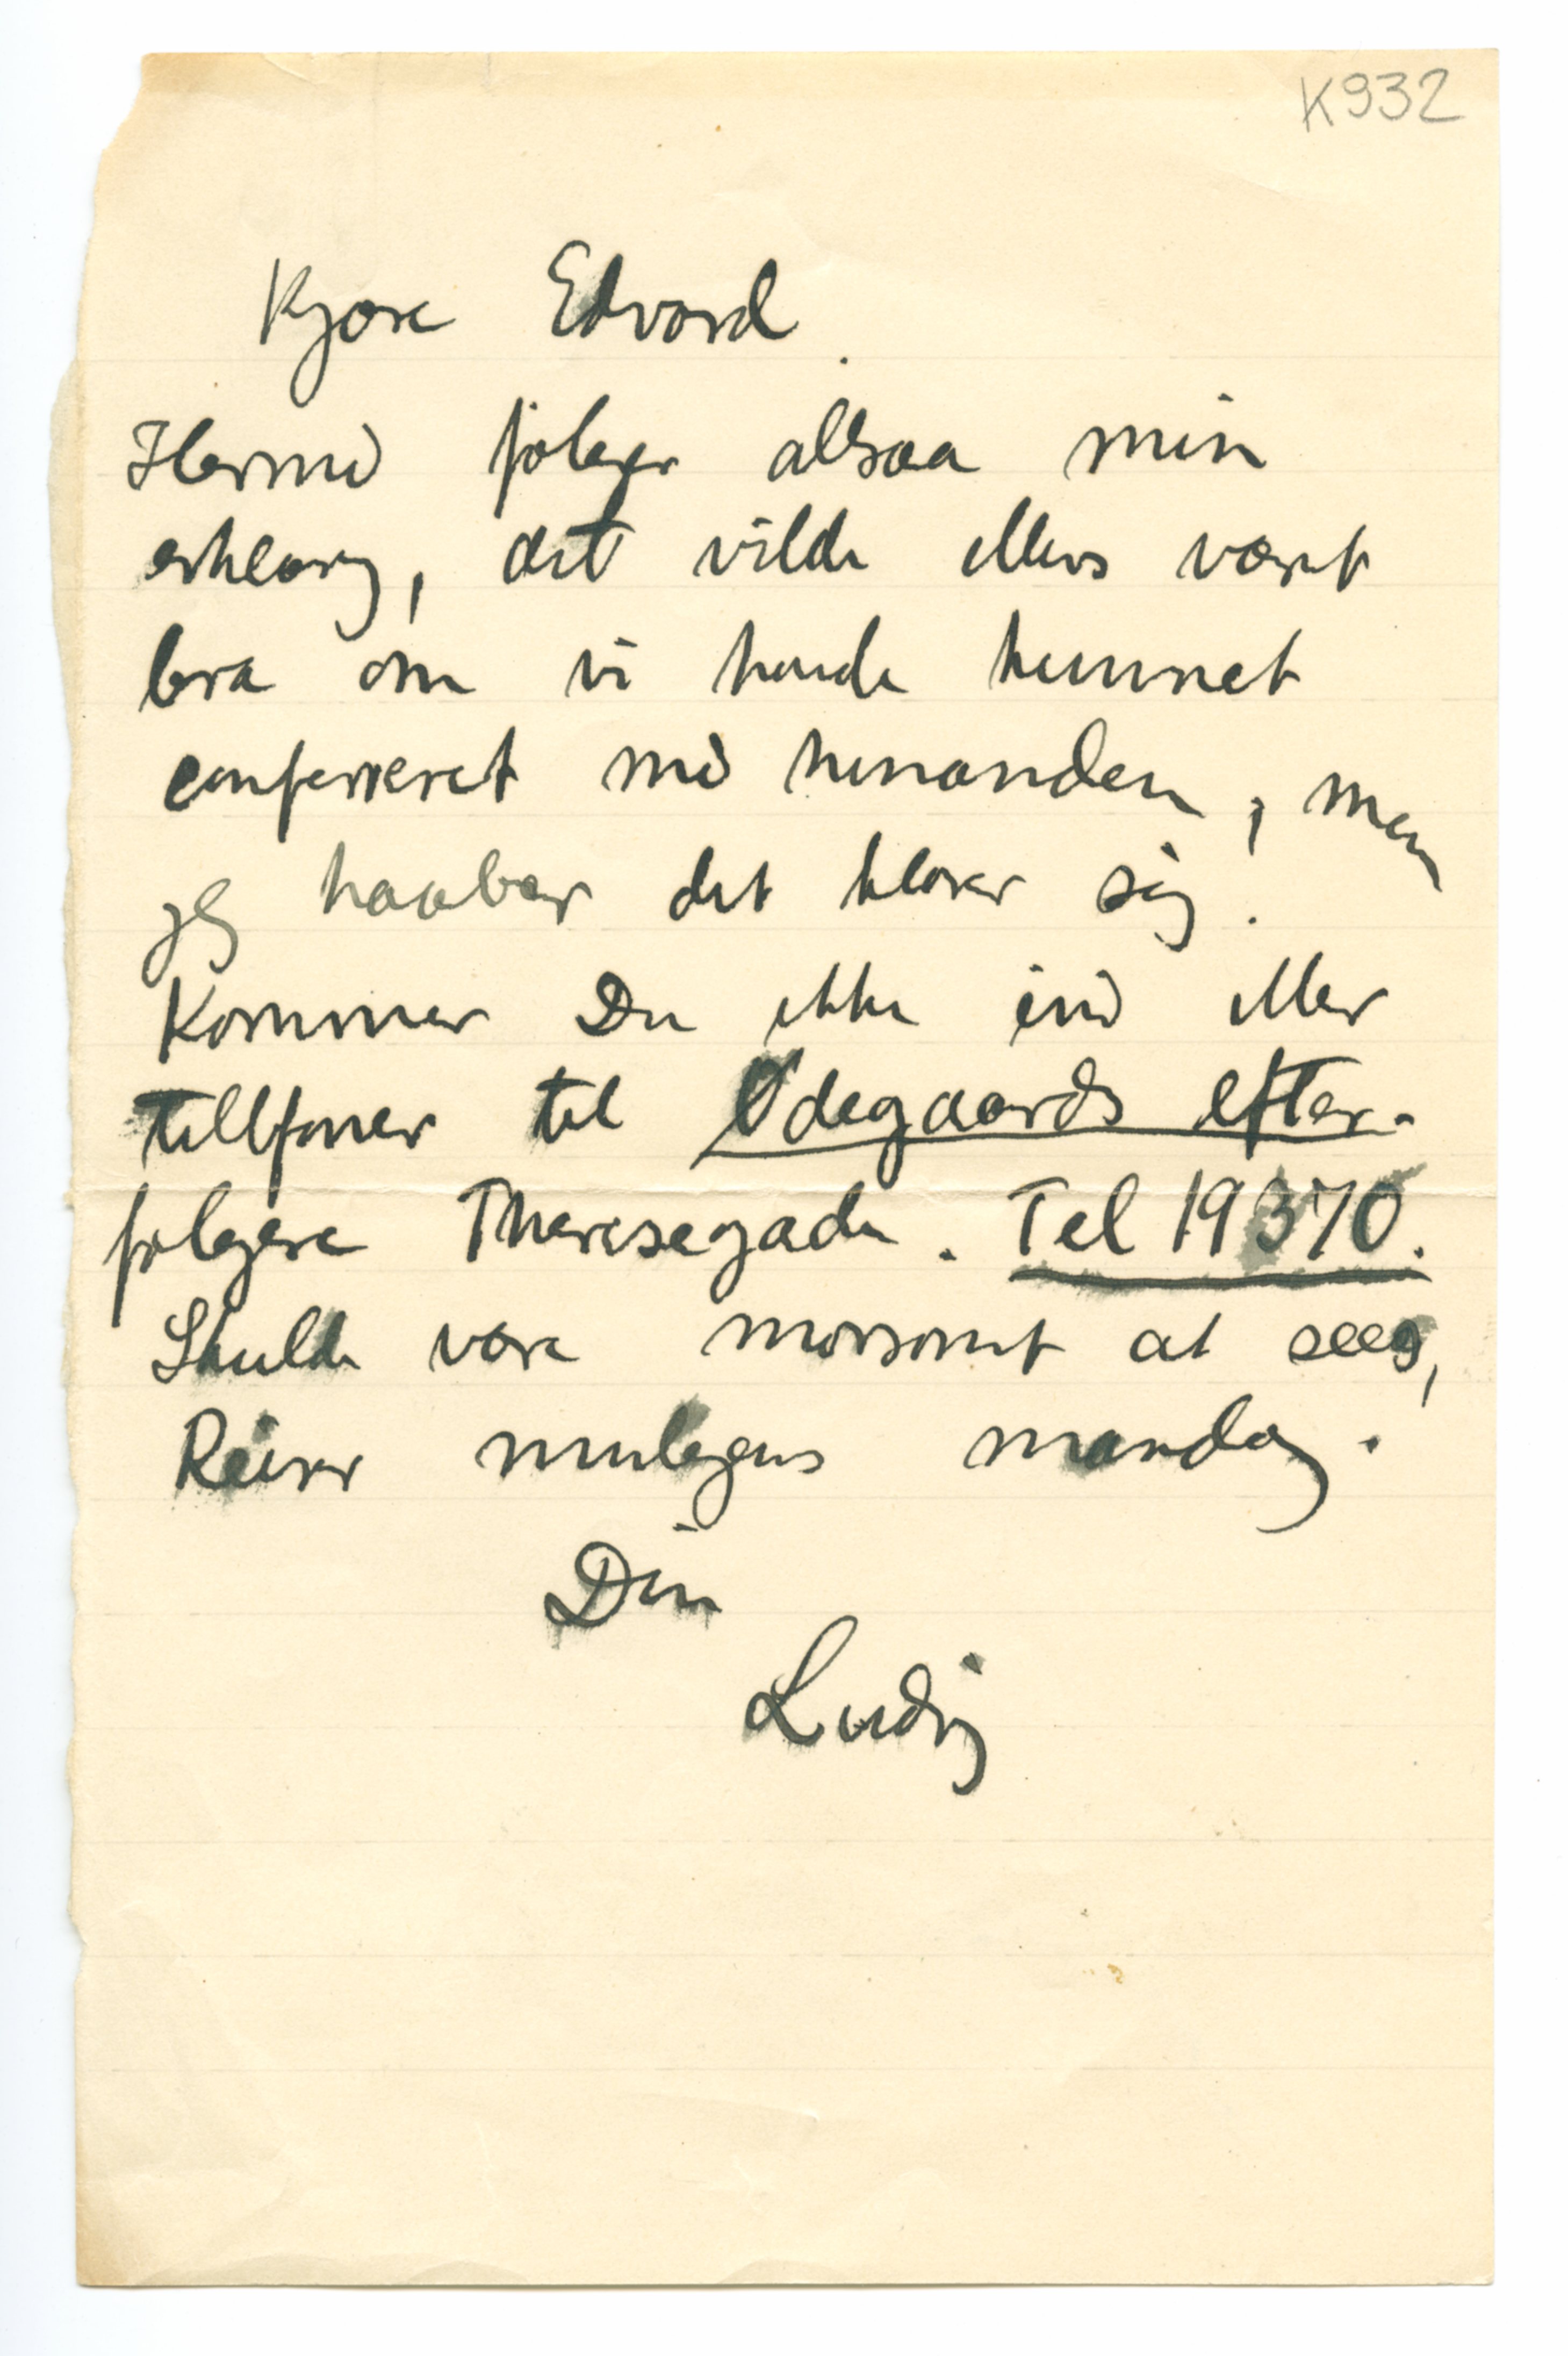 K932
Kjære Edvard.
Hermed følger altsaa min
erklæring, det vilde ellers været
bra om vi havde kunnet
conferreret med hinanden, men
jeg haaber det klarer sig.
Kommer Du ikke ind eller
tellefoner til Ødegaards efter-
følgere Theresegade. Tel 19370.
Skulde være morsomt at sees,
Reiser muligens mandag.
Din
Ludvig